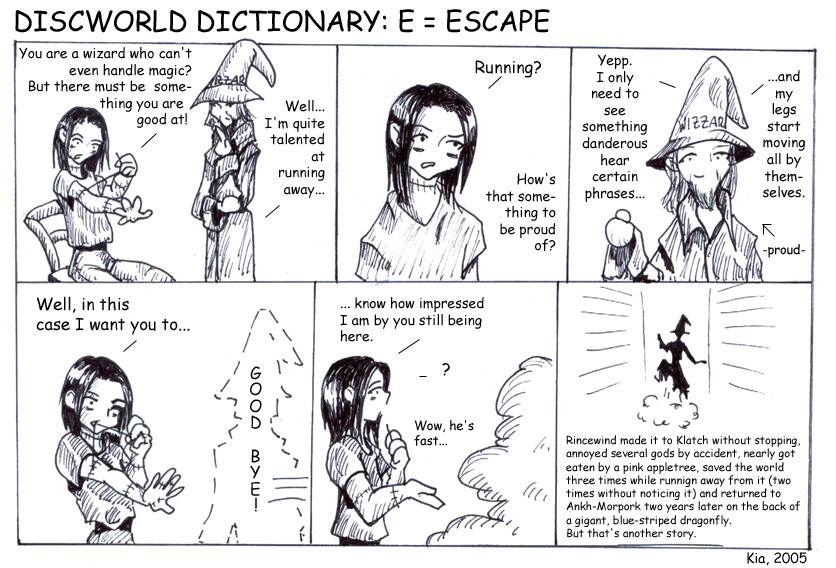 DISCWORLD DICTIONARY: E = ESCAPE
You are a wizard who can't
even handle magic?
But there must be some-
thing you are
good at!
WIZZAR
Well...
I'm quite
talented
at
running
away...
Running?
How's
that some-
thing to
be proud
of?
Yepp.
I only
need to
see
something
danderous
hear
certain
phrases...
WIZZAR
...and
my
legs
start
moving
all by
them-
selves.
-proud-
Well, in this
case I want you to...
GOOD BYE!
... know how impressed
I am by you still being
here.
_ ?
Wow, he's
fast...
Rincewind made it to Klatch without stopping,
annoyed several gods by accident, nearly got
eaten by a pink appletree, saved the world
three times while runnign away from it (two
times without noticing it) and returned to
Ankh-Morpork two years later on the back of
a gigant, blue-striped dragonfly.
But that's another story.
Kia, 2005